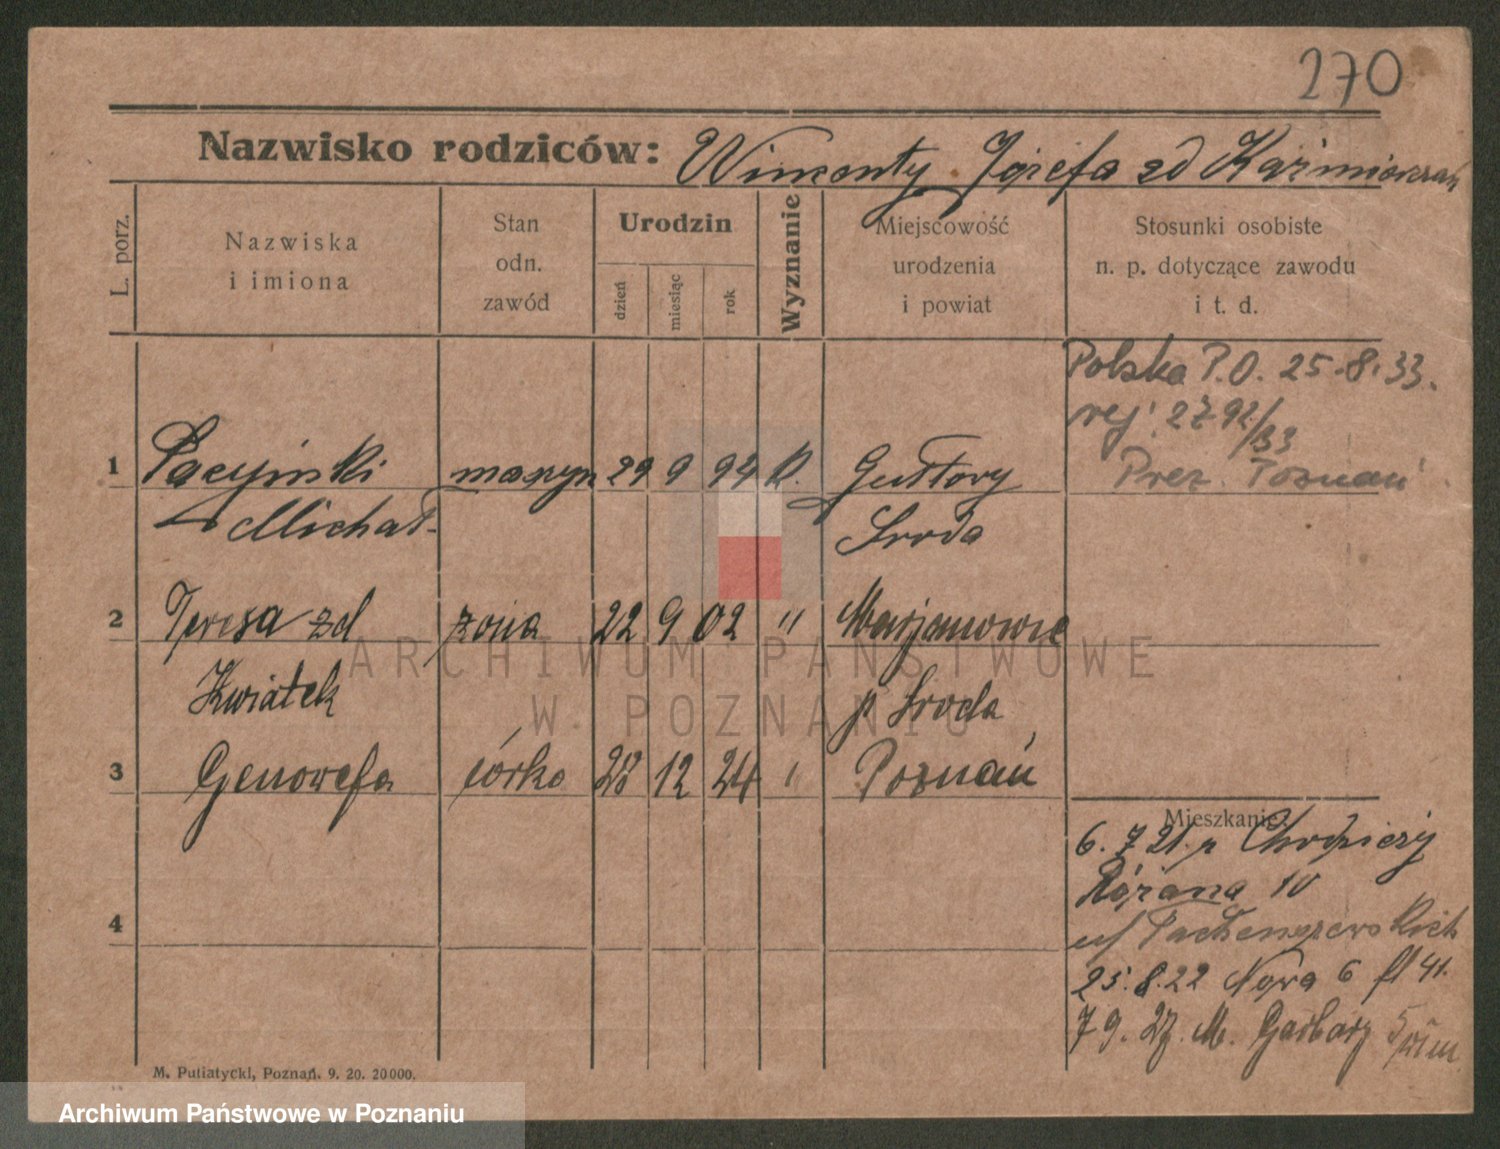 270
Nazwisko rodziców: Wincenty. Józefa zd Kaźmierzak
L. porz.
Nazwiska
i imiona
Stan
odn.
zawód
Urodzin
dzień
miesiąc
rok
Wyznanie
Miejscowość
urodzenia
i powiat
Stosunki osobiste
n. p. dotyczące zawodu
i t. d.
Polska P.O. 25.8.33.
rej. 2792/33
Prez. Poznań
1 Pacyński 29 9 94 K. Guttory
Michał Sroda
2 Teresa zd żona 22 9 02 " Marjanowie
Kwiatek p Sroda
3 Genowefa córka 28 12 24 " Poznań
4
Mieszkanie
6. 7 21. p
Różana 10
25.8.22 Nowa 6
7 9. 27. M. Garbary 5
M. Putiatycki, Poznań. 9. 20. 20000.
ARCHIWUM PAŃSTWOWE
W POZNANIU
Archiwum Państwowe w Poznaniu